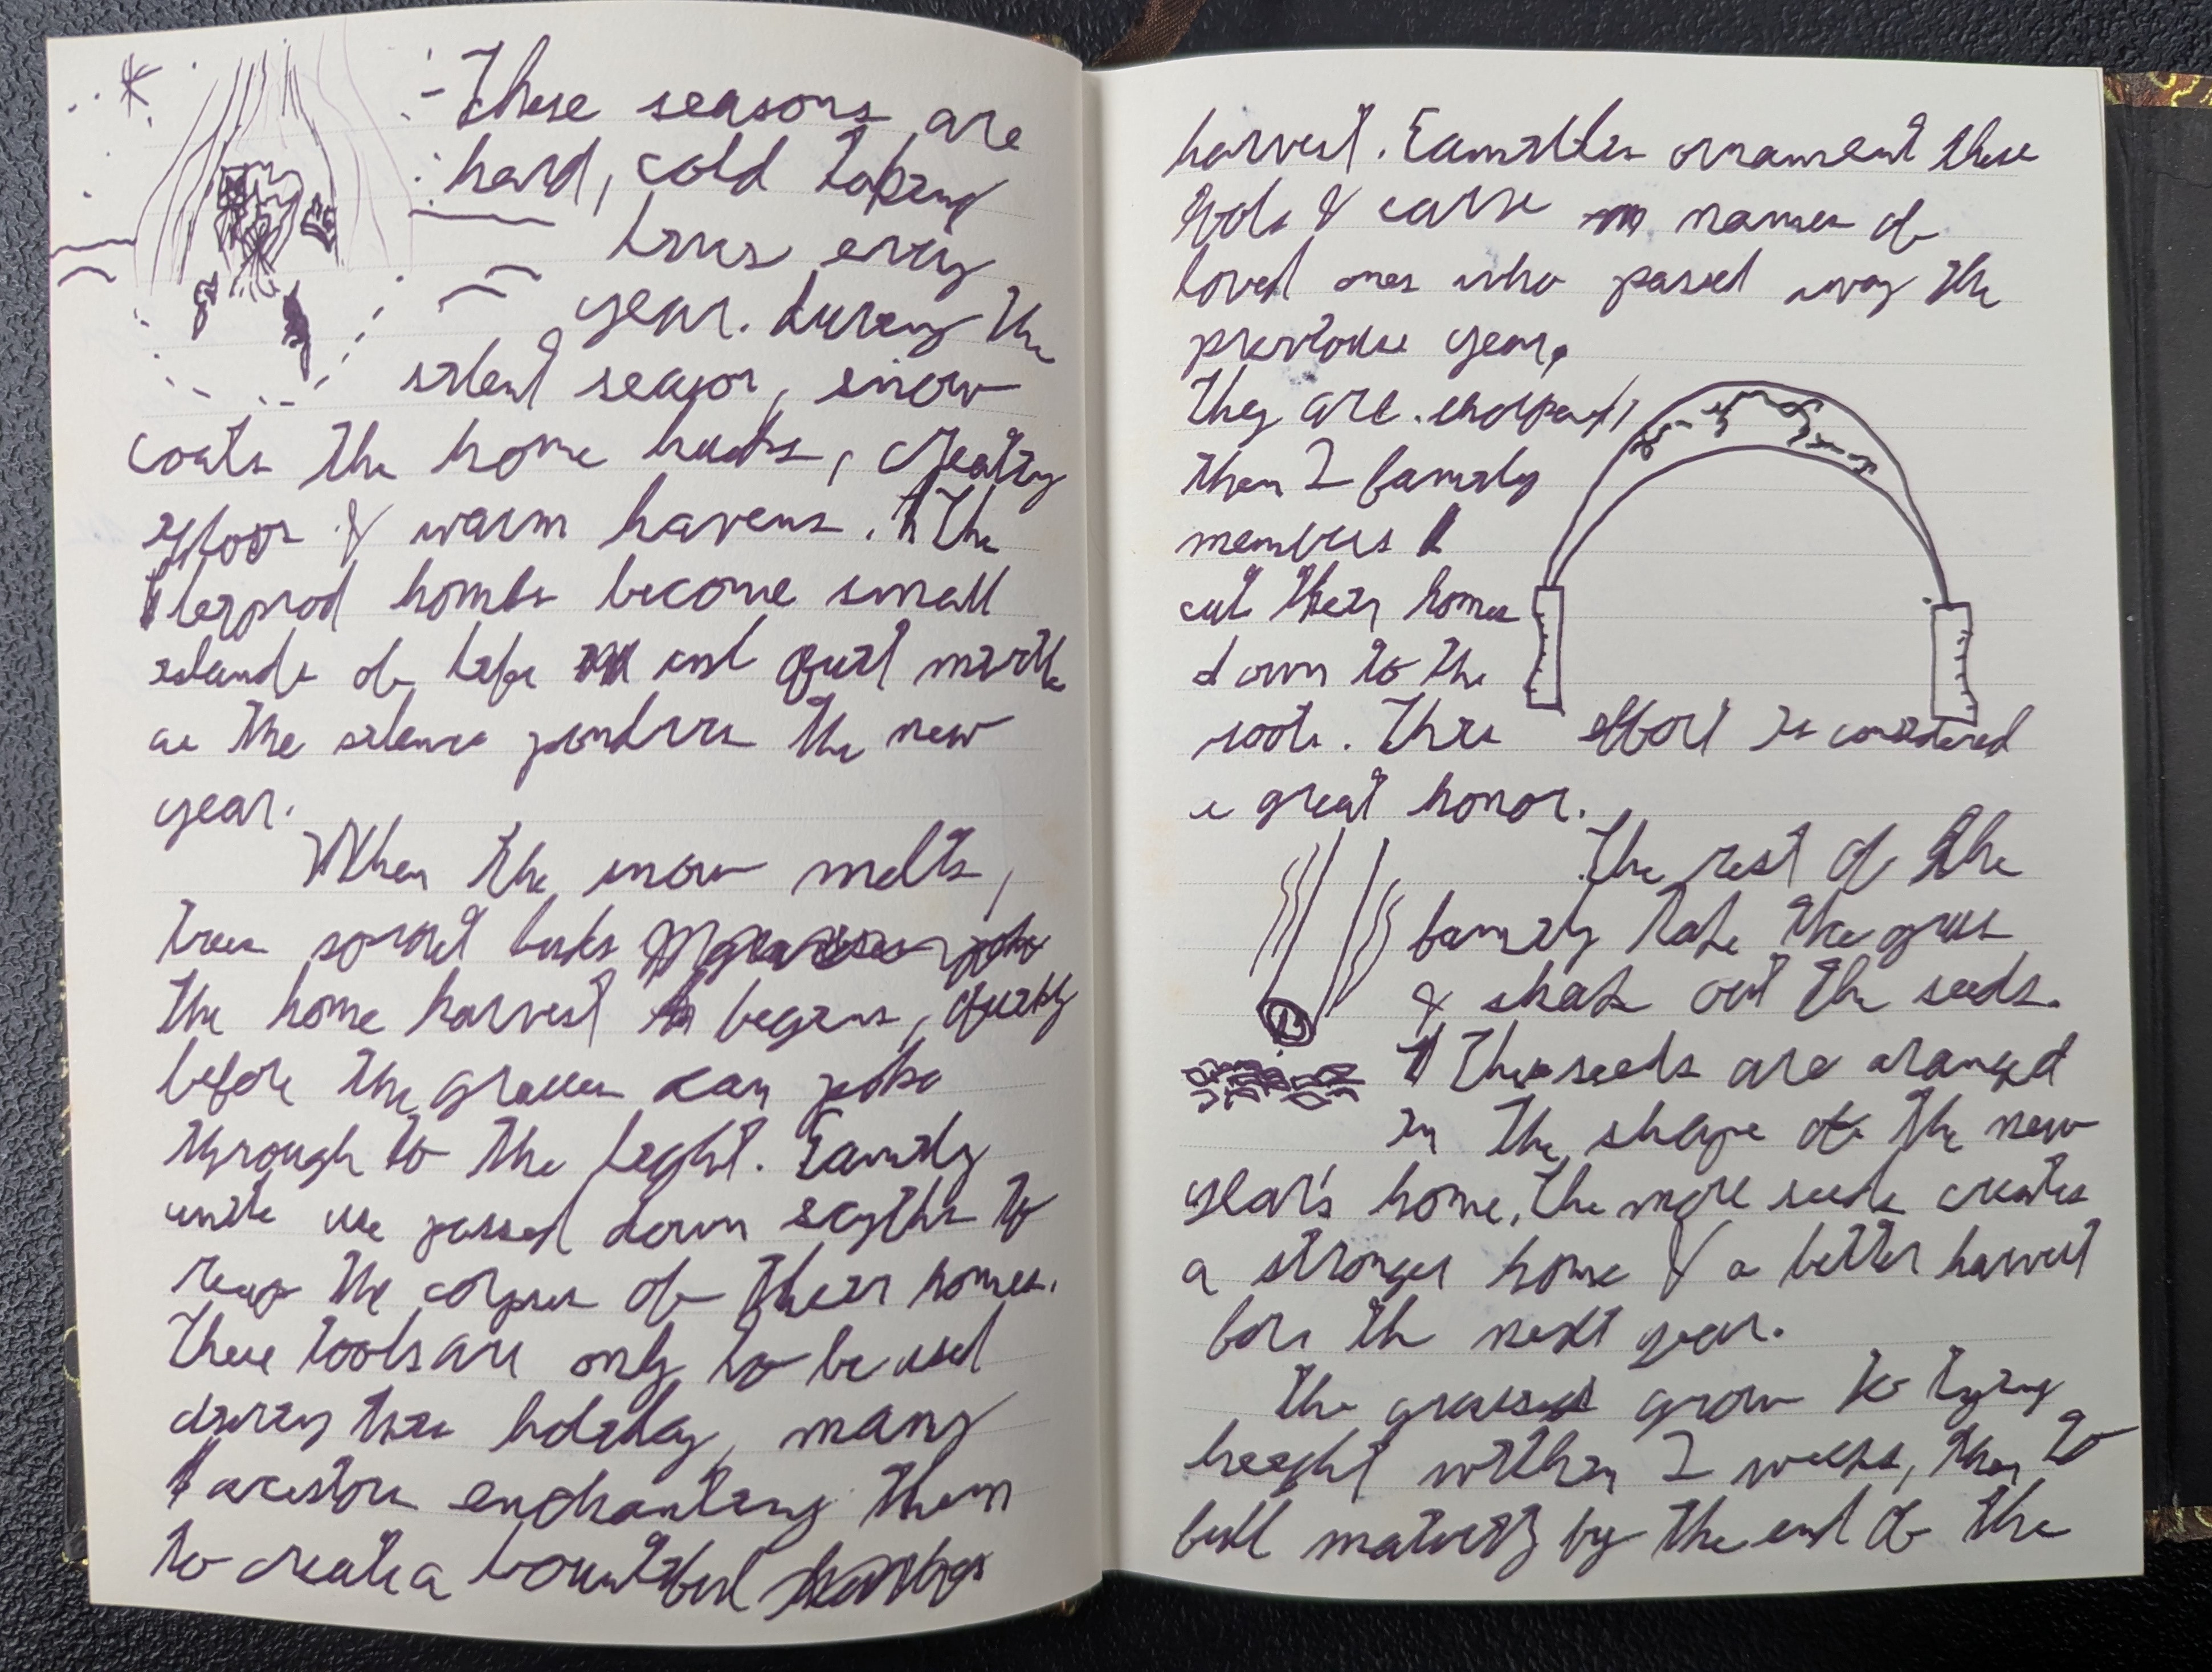 These seasons are
hard, cold taking
lives every
year. During the
silent season, snow
coats the home husks, creating
& warm havens. The
homes become small
islands of life and quiet mirth
as the silence ponders the new
year.
When the snow melts,
trees sprout buds
the home harvest begins, quickly
before the grasses can poke
through to the light. Family
units use passed down scythes to
reap the corpses of their homes.
These tools are only to be used
during this holiday, many
ancestors enchanting them
to create a bountiful
harvest. Families ornament these
tools & carve names of
loved ones who passed away the
previous year.
They are
then 2 family
members
cut their homes
down to the
roots. This effort is considered
a great honor.
The rest of the
family take the grass
& shake out the seeds.
The seeds are aranged
in the shape of the new
year's home. The more seeds creates
a stronger home & a better harvest
for the next year.
The grasses grow to tying
height within 2 weeks, then to
full maturity by the end of the